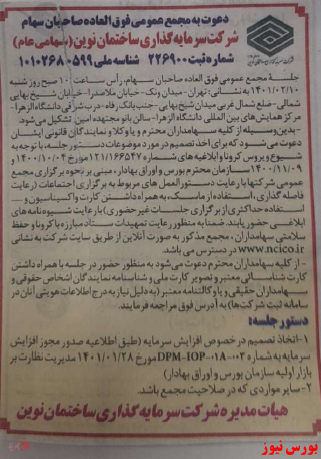 دعوت به مجمع عمومی فوق العاده صاحبان سهام
شرکت سرمایه گذاری ساختمان نوین (سهامی عام)
شماره ثبت ۲۲۶۹۰۰ شناسه ملی ۱۰۱۰۲۶۸۰۵۹۹
جلسهٔ مجمع عمومی فوق العاده صاحبان سهام، رأس ساعت ۱۰ صبح روز شنبه
۱۴۰۱/۰۲/۱۰ به نشانی: تهران - میدان ونک - خیابان ملاصدرا - خیابان شیخ بهایی
شمالی - ضلع شمال غربی میدان شیخ بهایی - جنب بانک رفاه - درب شرقی دانشگاه الزهرا -
مرکز همایش های بین المللی دانشگاه الزهرا - سالن بانو مجتهده امین تشکیل می شود.
بدین وسیله از کلیه سهامداران محترم و یا وکلا و نمایندگان قانونی ایشان
دعوت می شود که برای اخذ تصمیم در مورد موضوعات دستور جلسه، با توجه به
شیوع ویروس کرونا و ابلاغیه های شماره ۱۲۱/۱۶۶۵۴۷ مورخ ۱۴۰۰/۱۰/۰۴ و
۱۴۰۰/۱۱/۰۹ سازمان محترم بورس و اوراق بهادار، مبنی بر نحوه برگزاری مجمع
عمومی شرکتها با رعایت دستورالعمل های مربوط به برگزاری اجتماعات (رعایت
فاصله گذاری، استفاده از ماسک، به همراه داشتن کارت واکسیناسیون و
استفاده حداکثری از برگزاری جلسات غیر حضوری) با رعایت شیوه نامه های
ابلاغی حضور یابند. ضمناً به منظور رعایت تمهیدات ستاد مبارزه با کرونا و حفظ
سلامتی سهامداران، مجمع مذکور به صورت آنلاین از طریق سایت شرکت به نشانی
www.ncico.ir در دسترس می باشد.
- از کلیه سهامداران محترم دعوت می شود به منظور حضور در جلسه با همراه داشتن
کارت شناسائی معتبر و تصویر کارت ملی و شناسنامه نمایندگان اشخاص حقوقی و
سهامداران حقیقی و یا وکالتنامه معتبر (به دلیل نیاز به درج اطلاعات هویتی آنان در
سامانه ثبت شرکت ها) به آدرس فوق مراجعه فرمایند.
دستور جلسه:
۱- اتخاذ تصمیم در خصوص افزایش سرمایه (طبق اطلاعیه صدور مجوز افزایش
سرمایه به شماره DPM-IOP-۰۱A-۰۰۳ مورخ ۱۴۰۱/۰۱/۲۸ مدیریت نظارت بر
بازار اولیه سازمان بورس و اوراق بهادار)
۲- سایر مواردی که در صلاحیت مجمع باشد.
هیأت مدیره شرکت سرمایه گذاری ساختمان نوین
بورس نیوز